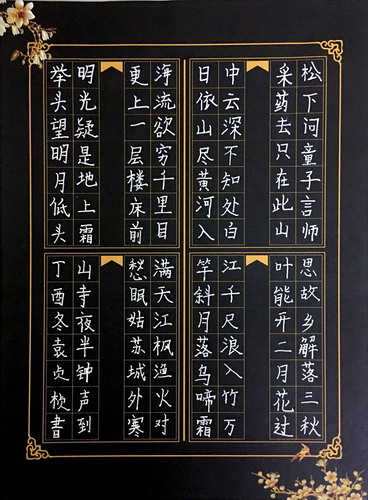 松下问童子言师
采药去只在此山
中云深不知处白
日依山尽黄河入
海流欲穷千里目
更上一层楼床前
明光疑是地上霜
举头望明月低头
思故乡解落三秋
叶能开二月花过
江千尺浪入竹万
竿斜月落乌啼霜
满天江枫渔火对
愁眠姑苏城外寒
山寺夜半钟声到
丁酉冬袁贞書